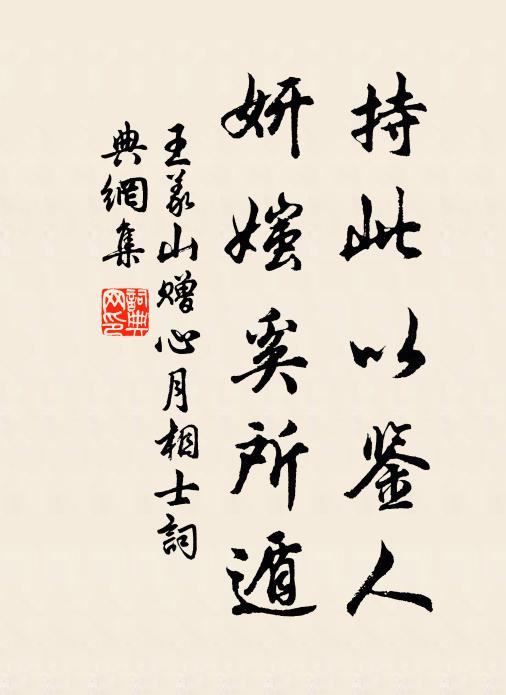 持此以鉴人
妍媸奚所遁
王义山赠心月相士詞
典網集
詞典
网印